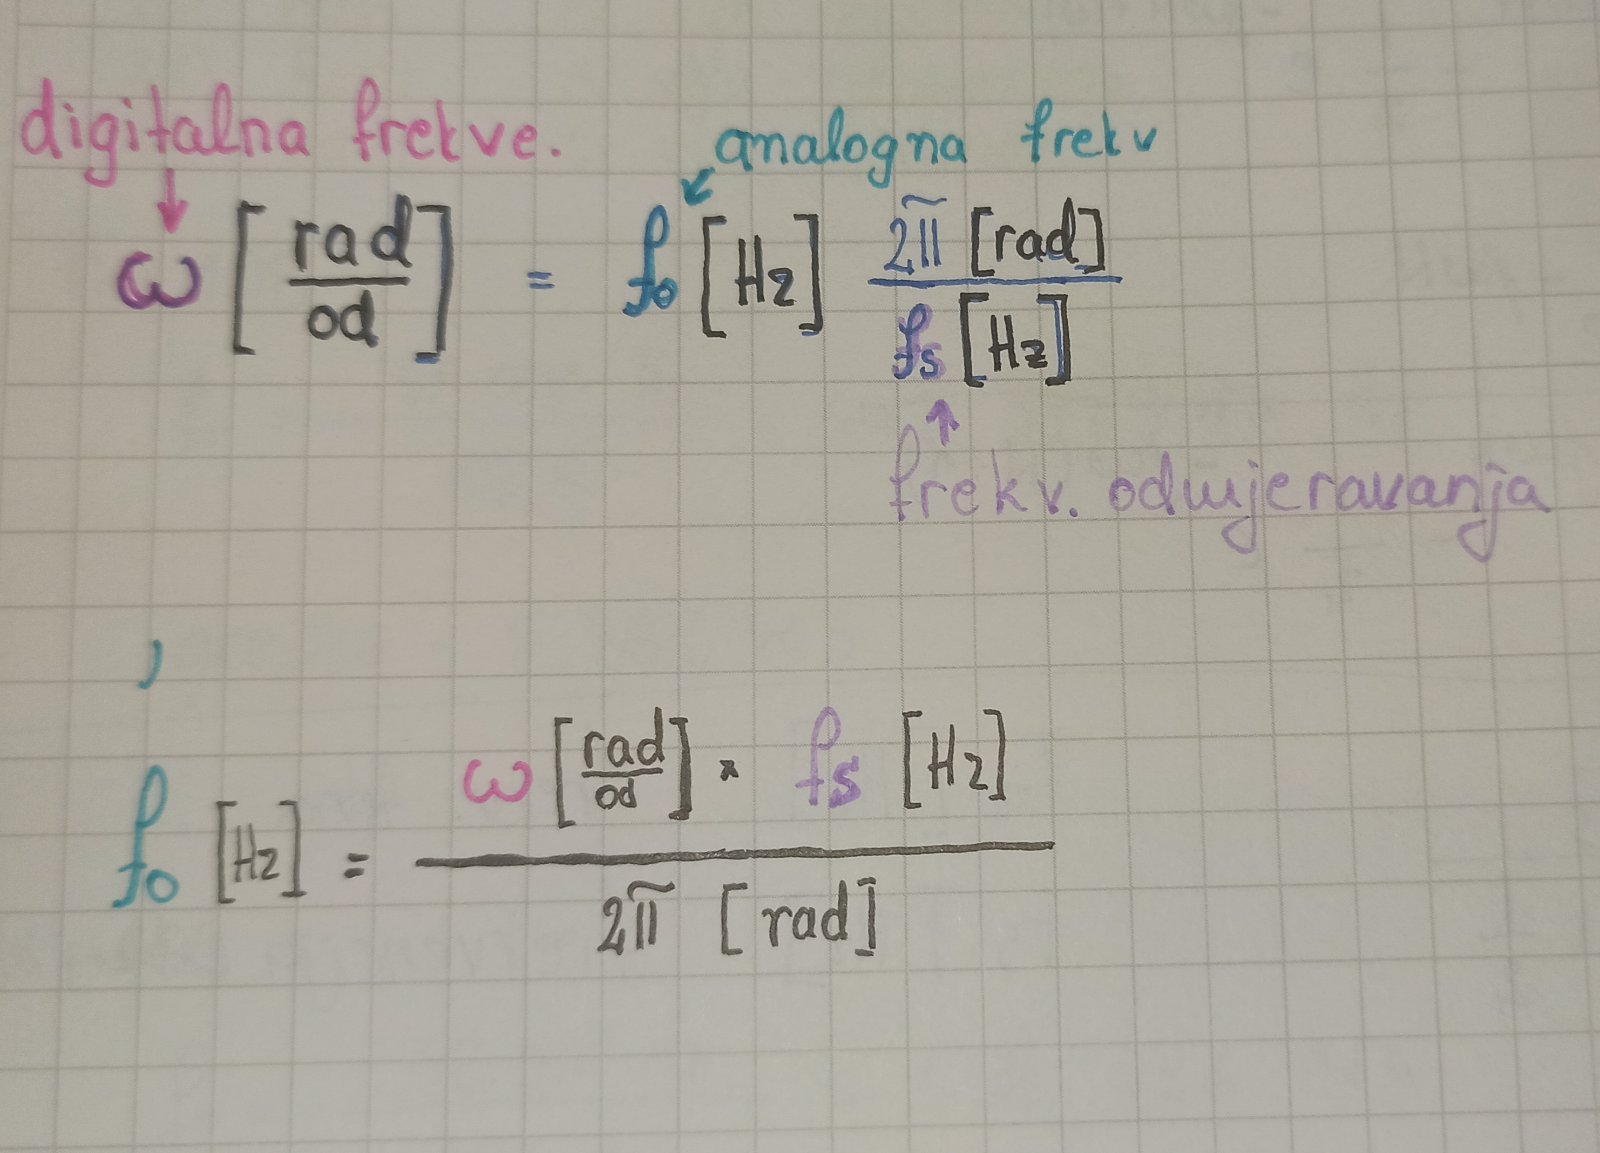 digitalna frekve.
analogna frekv
ω [rad/od] = f₀ [Hz] 2π [rad] / fs [Hz]
frekv. odmjeravanja
f₀ [Hz] = ω [rad/od] * fs [Hz] / 2π [rad]